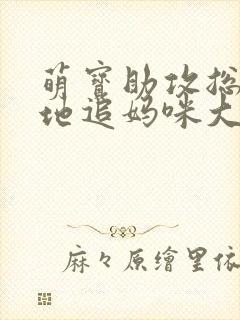 萌寶助攻总
地追妈咪大
麻々原繪里依